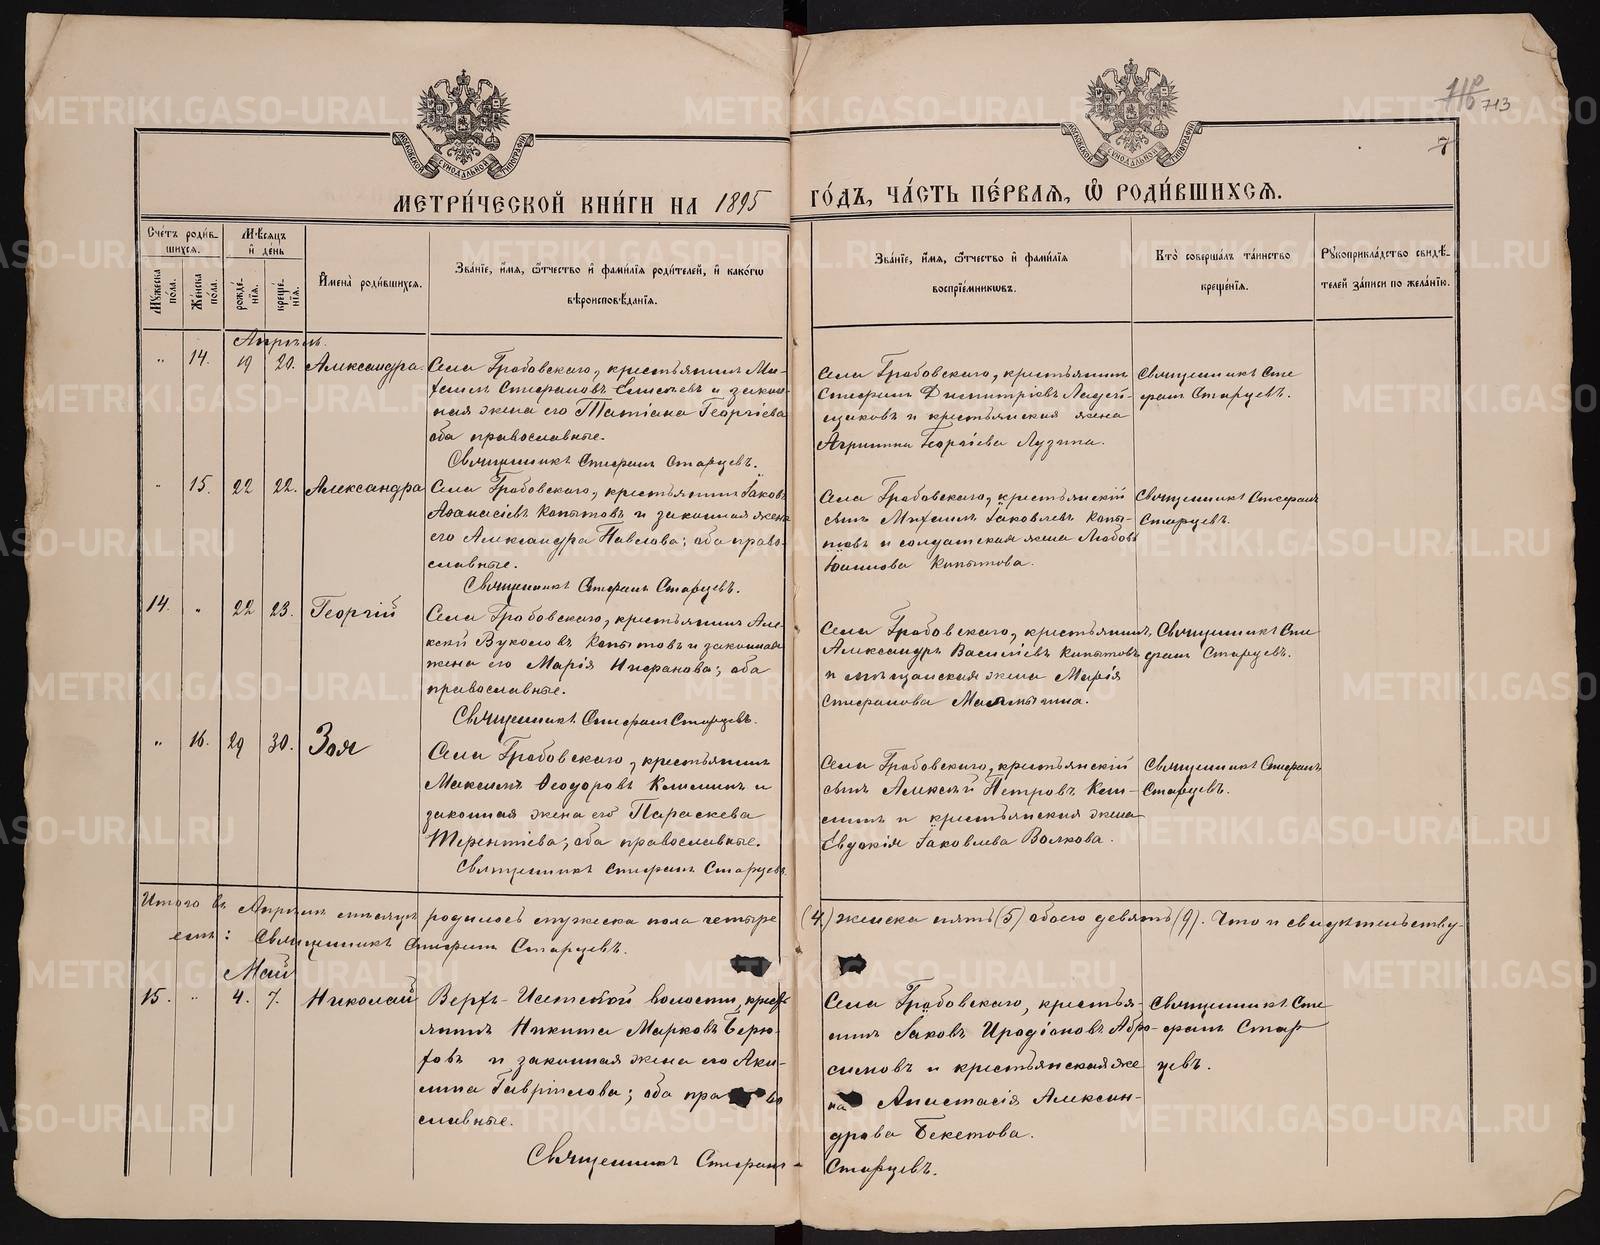 116 713
7
МЕТРИ́ЧЕСКОЙ КНИ́ГИ НА 1895 ГО́ДЪ, ЧА́СТЬ ПЕ́РВАЯ, Ѡ РОДИ́ВШИХСЯ.
МОСКОВСКОЙ СѴНОДАЛЬНОЙ ТИПОГРАФІИ
МОСКОВСКОЙ СѴНОДАЛЬНОЙ ТИПОГРАФІИ
Сче́тъ роди́в-
шихся.
Мꙋ́жеска по́ла.
Же́нска по́ла.
Мѣ́сяцъ
и҆ де́нь
рожде́-
нїя.
креще́-
нїя.
И҆мена̀ роди́вшихся.
Зва́нїе, и҆́мя, ѻ҆́тчество и҆ фами́лїя роди́телей, и҆ како́гѡ
вѣроисповѣ́данїя.
Зва́нїе, и҆́мя, ѻ҆́тчество и҆ фами́лїя
воспрїе́мникѡвъ.
Кто̀ соверша́лъ та́инство
креще́нїя.
Рꙋкоприкла́дство свидѣ́-
телей за́писи по жела́нїю.
Апрѣль.
" 14. 19 20. Александра
Села Гробовскаго, крестьянинъ Ми-
хаилъ Стефановъ Елисѣевъ и закон-
ная жена его Татіана Георгіева
оба православные.
Священникъ Стефанъ Старцевъ.
Села Гробовскаго, крестьянинъ
Стефанъ Димитріевъ
и крестьянская жена
Агрипина Георгіева Лузина.
Священникъ Сте-
фанъ Старцевъ.
" 15. 22 22. Александра
Села Гробовскаго, крестьянинъ Іаковъ
Аѳанасіевъ Копытовъ и законная жена
его Александра Павлова; оба право-
славные.
Священникъ Стефанъ Старцевъ.
Села Гробовскаго, крестьянскій
сынъ Михаилъ Іаковлевъ Копы-
товъ и солдатская жена Любовь
Іоаннова Копытова.
Священникъ Стефанъ
Старцевъ.
14. " 22 23. Георгій
Села Гробовскаго, крестьянинъ Але-
ксѣй Вуколовъ Копытовъ и законная
жена его Марія Нифанова; оба
православные.
Священникъ Стефанъ Старцевъ.
Села Гробовскаго, крестьянинъ
Александръ Василіевъ Копытовъ
и мѣщанская жена Марія
Стефанова Малмыгина.
Священникъ Сте-
фанъ Старцевъ.
" 16. 29 30. Зоя
Села Гробовскаго, крестьянинъ
Максимъ Ѳеодоровъ Климинъ и
законная жена его Параскева
Терентіева; оба православные.
Священникъ Стефанъ Старцевъ
Села Гробовскаго, крестьянскій
сынъ Алексѣй Петровъ
и крестьянская жена
Евдокія Іаковлева Волкова.
Священникъ Стефанъ
Старцевъ.
Итого въ Апрѣлѣ мѣсяцѣ родилось мужеска пола четыре (4.) женска пять (5) обоего девять (9). Что и свидѣтельству-
емъ: Священникъ Стефанъ Старцевъ.
Май
15. " 4. 7. Николай
Верхъ-Исетской волости, крест
янинъ Никита Марковъ Берю-
ховъ и законная жена его Аки-
лина Гавріилова; оба пра во
славные.
Священникъ Стефанъ
Села Гробовскаго, крестья-
нинъ Іаковъ Иродіоновъ Абро-
симовъ и крестьянская же
на Анастасія Алексан-
дрова Бекетова.
Старцевъ.
Священникъ Сте
фанъ Стар
цевъ.
METRIKI.GASO-URAL.RU